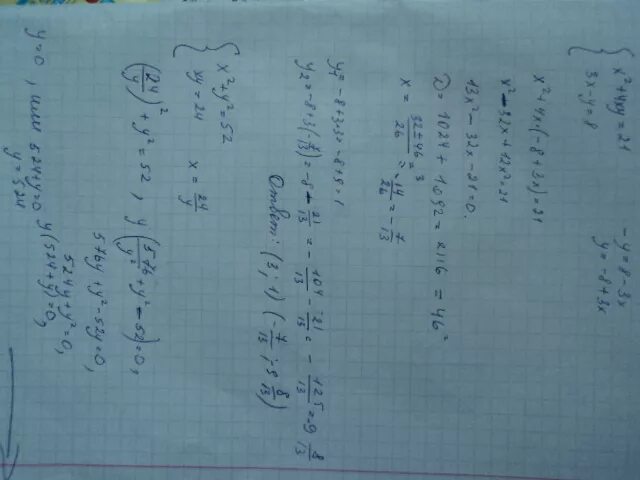 { x² + 4xy = 21
3x - y = 8
-y = 8 - 3x
y = -8 + 3x
x² + 4x·(-8 + 3x) = 21
x² - 32x + 12x² = 21
13x² - 32x - 21 = 0.
D = 1024 + 1092 = 2116 = 46²
x = (32 ± 46)/26 = 3 ; -14/26 = -7/13
y₁ = -8 + 3·3 = -8 + 9 = 1
y₂ = -8 + 3(-7/13) = -8 - 21/13 = -104/13 - 21/13 = -125/13 = -9 8/13
Ответ: (3; 1) (-7/13; -9 8/13)
{ x² + y² = 52
xy = 24
x = 24/y
(24/y)² + y² = 52, y(576/y² + y² - 52) = 0,
576y + y² - 52y = 0,
524y + y² = 0,
y(524 + y) = 0,
y = 0, или 524y = 0
y = 524